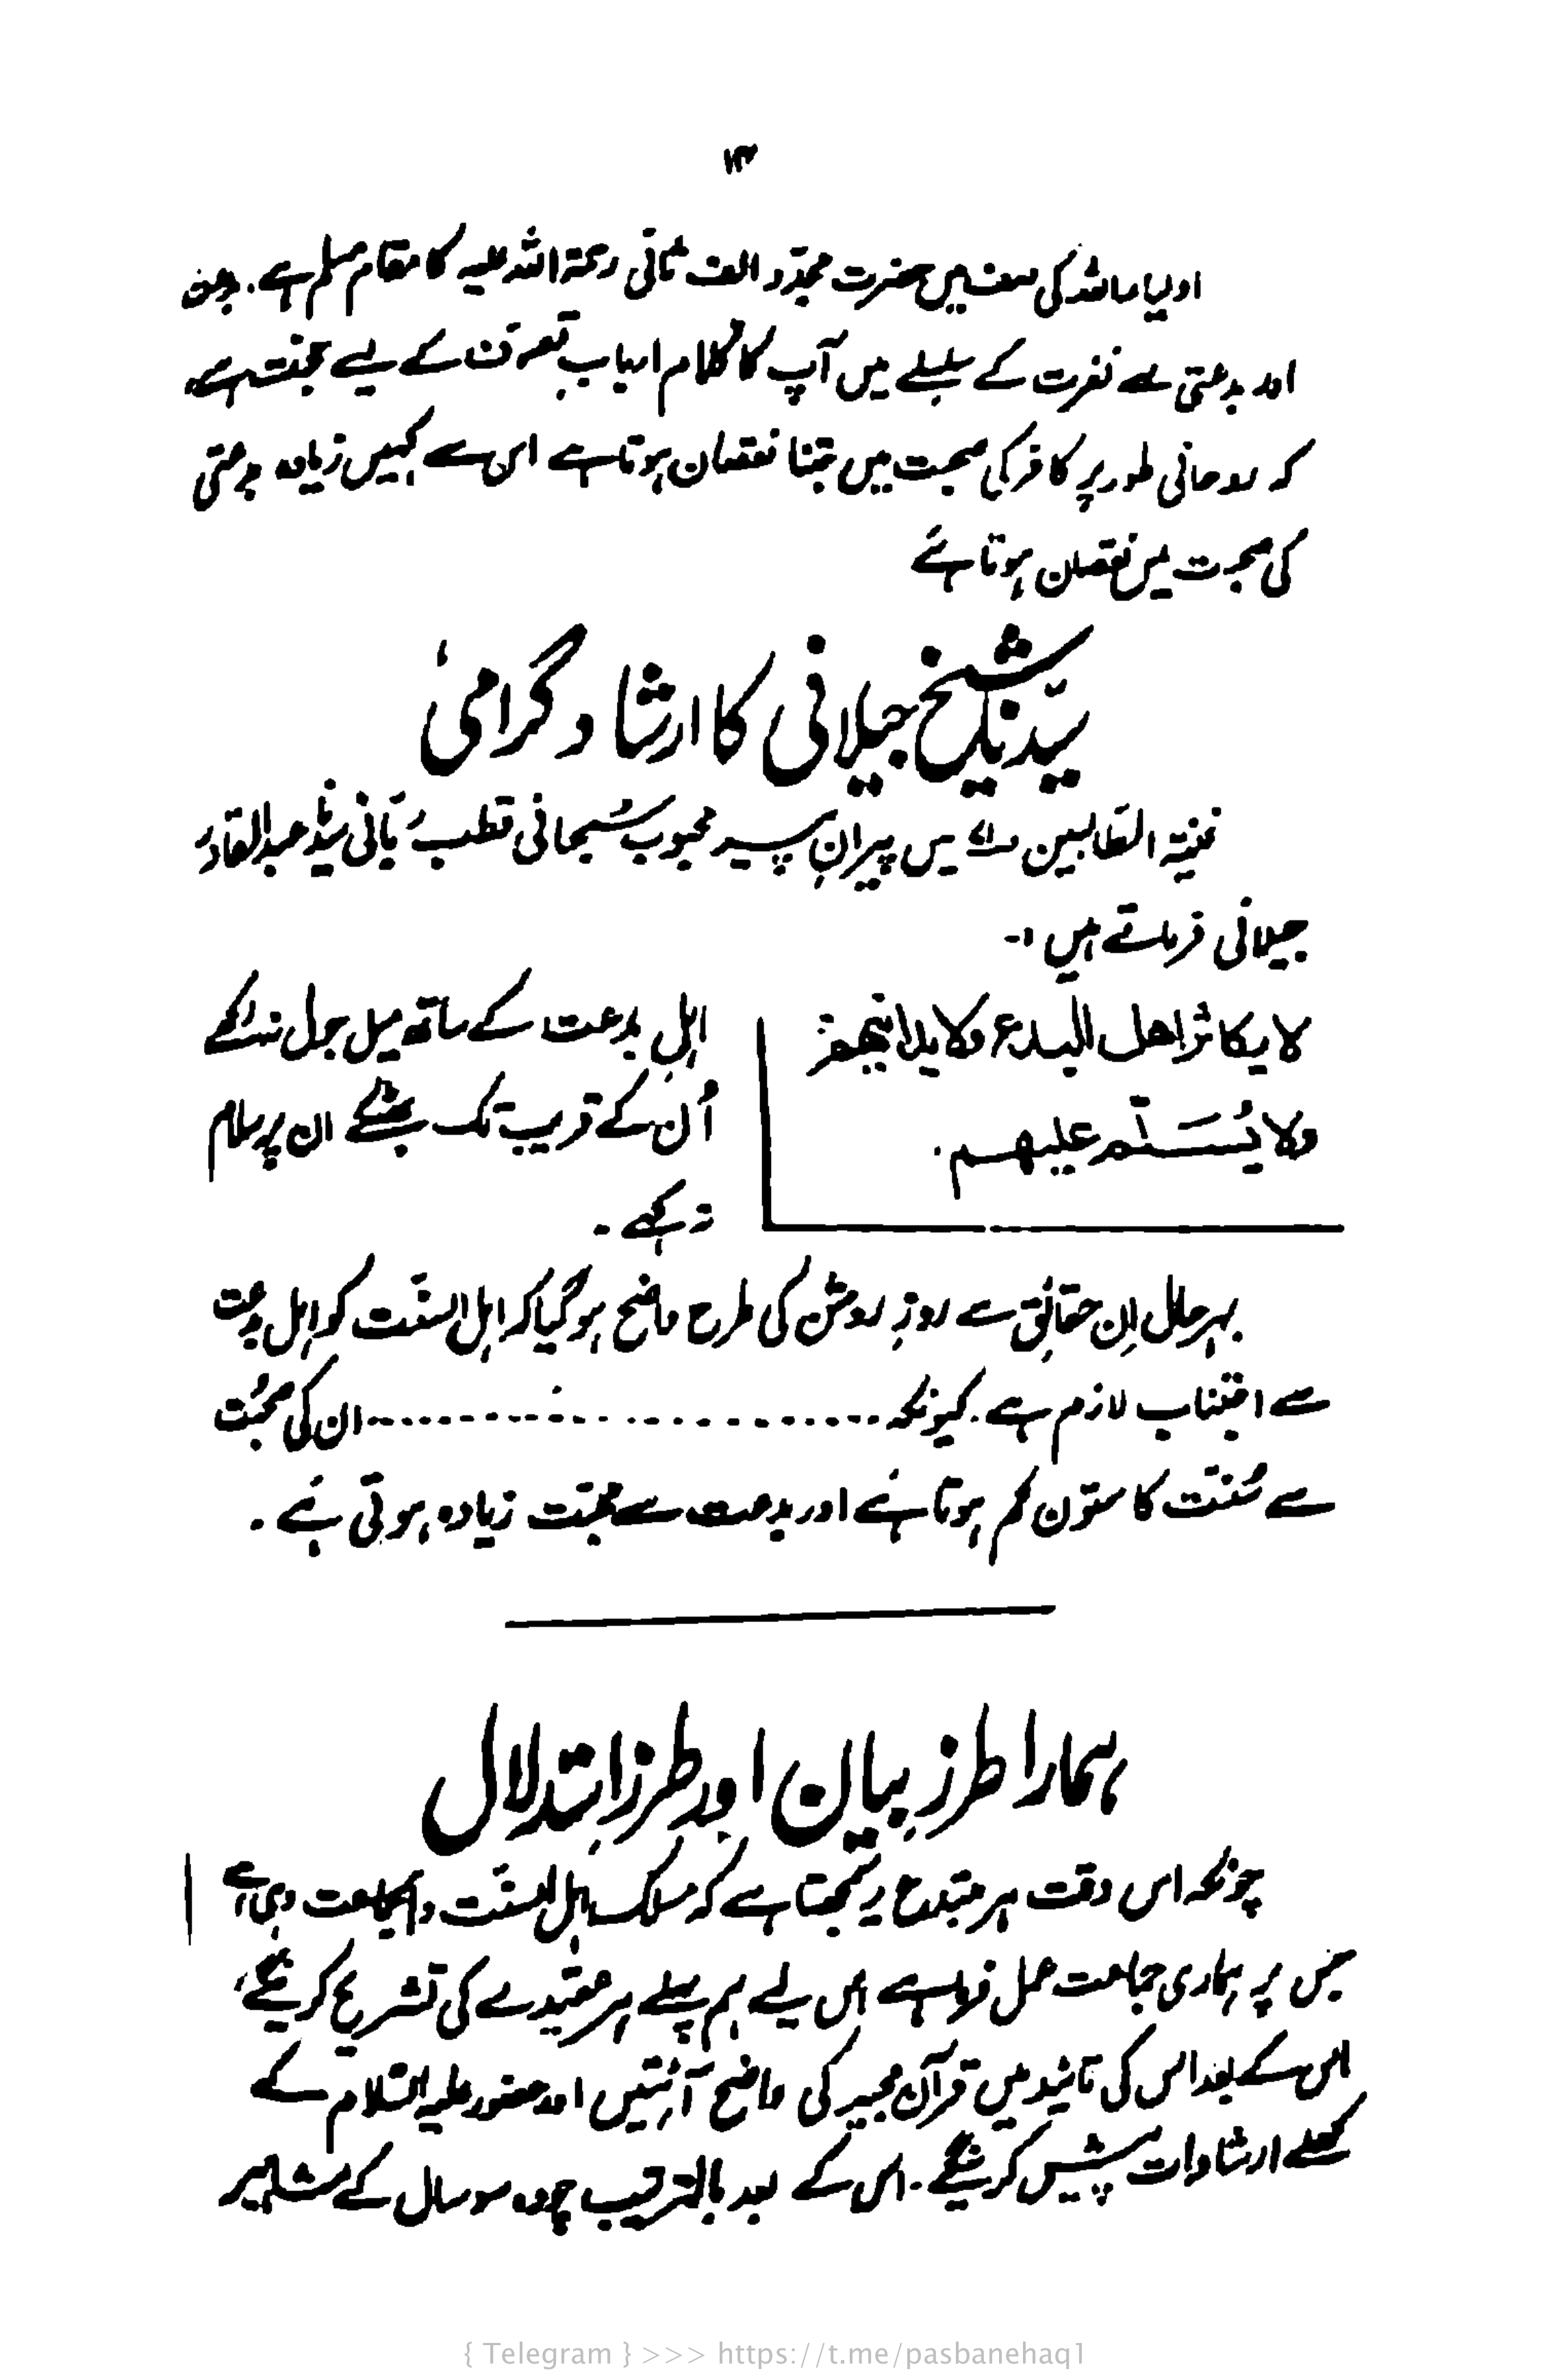 ۱۳
اولیاء اللہ کی صف میں حضرت مجدّد الف ثانی رحمۃ اللہ علیہ کا مقام مسلم ہے۔
اور بدعتی سے نفرت کے سلسلے میں آپ کا کلام اربابِ تصوّف کے لیے حجّت ہے
کہ روحانی طور پر کافر کی صحبت میں جتنا نقصان ہوتا ہے اس سے کہیں زیادہ بدعتی
کی صحبت میں نقصان ہوتا ہے
سیّدنا شیخ جیلانی کا ارشادِ گرامی
غنیۃ الطالبین میں پیرانِ پیر محبوب سُبحانی قطب ربّانی سیّد عبدالقادر
جیلانی فرماتے ہیں :-
لا یکاثر اھل البدع ولا یدانیھم
ولا یُسَلّم علیھم.
اہلِ بدعت کے ساتھ میل جول نہ رکھے
اُن کے قریب تک بھٹکے ان پر سلام
نہ کہے ۔
بہرحال اِن حقائق سے روزِ روشن کی طرح واضح ہو گیا کہ اہل السنّت کو اہل بدعت
سے اجتناب لازم ہے۔ کیونکہ ........................... ان کی صحبت
سے سُنّت کا ستون گم ہوتا ہے اور بدعت سے محبّت زیادہ ہوتی ہے ۔
ہمارا طرزِ بیان اور طرزِ استدلال
چونکہ اس وقت ہر مبتدع یہ سمجھتا ہے کہ مسلک اہل السنّت والجماعت وہی ہے
جس پر ہماری جماعت عمل فرما ہے اس لیے ہم پہلے ہر عقیدے کی تشریح کریں گے،
اس کے بعد اس کی تائید میں قرآن مجید کی واضح آئتیں اور حضور علیہ السّلام کے
کھلے ارشادات پیش کریں گے۔ اس کے بعد بالترتیب چودہ سو سال کے مشاہیر
{ Telegram } >>> https://t.me/pasbanehaq1